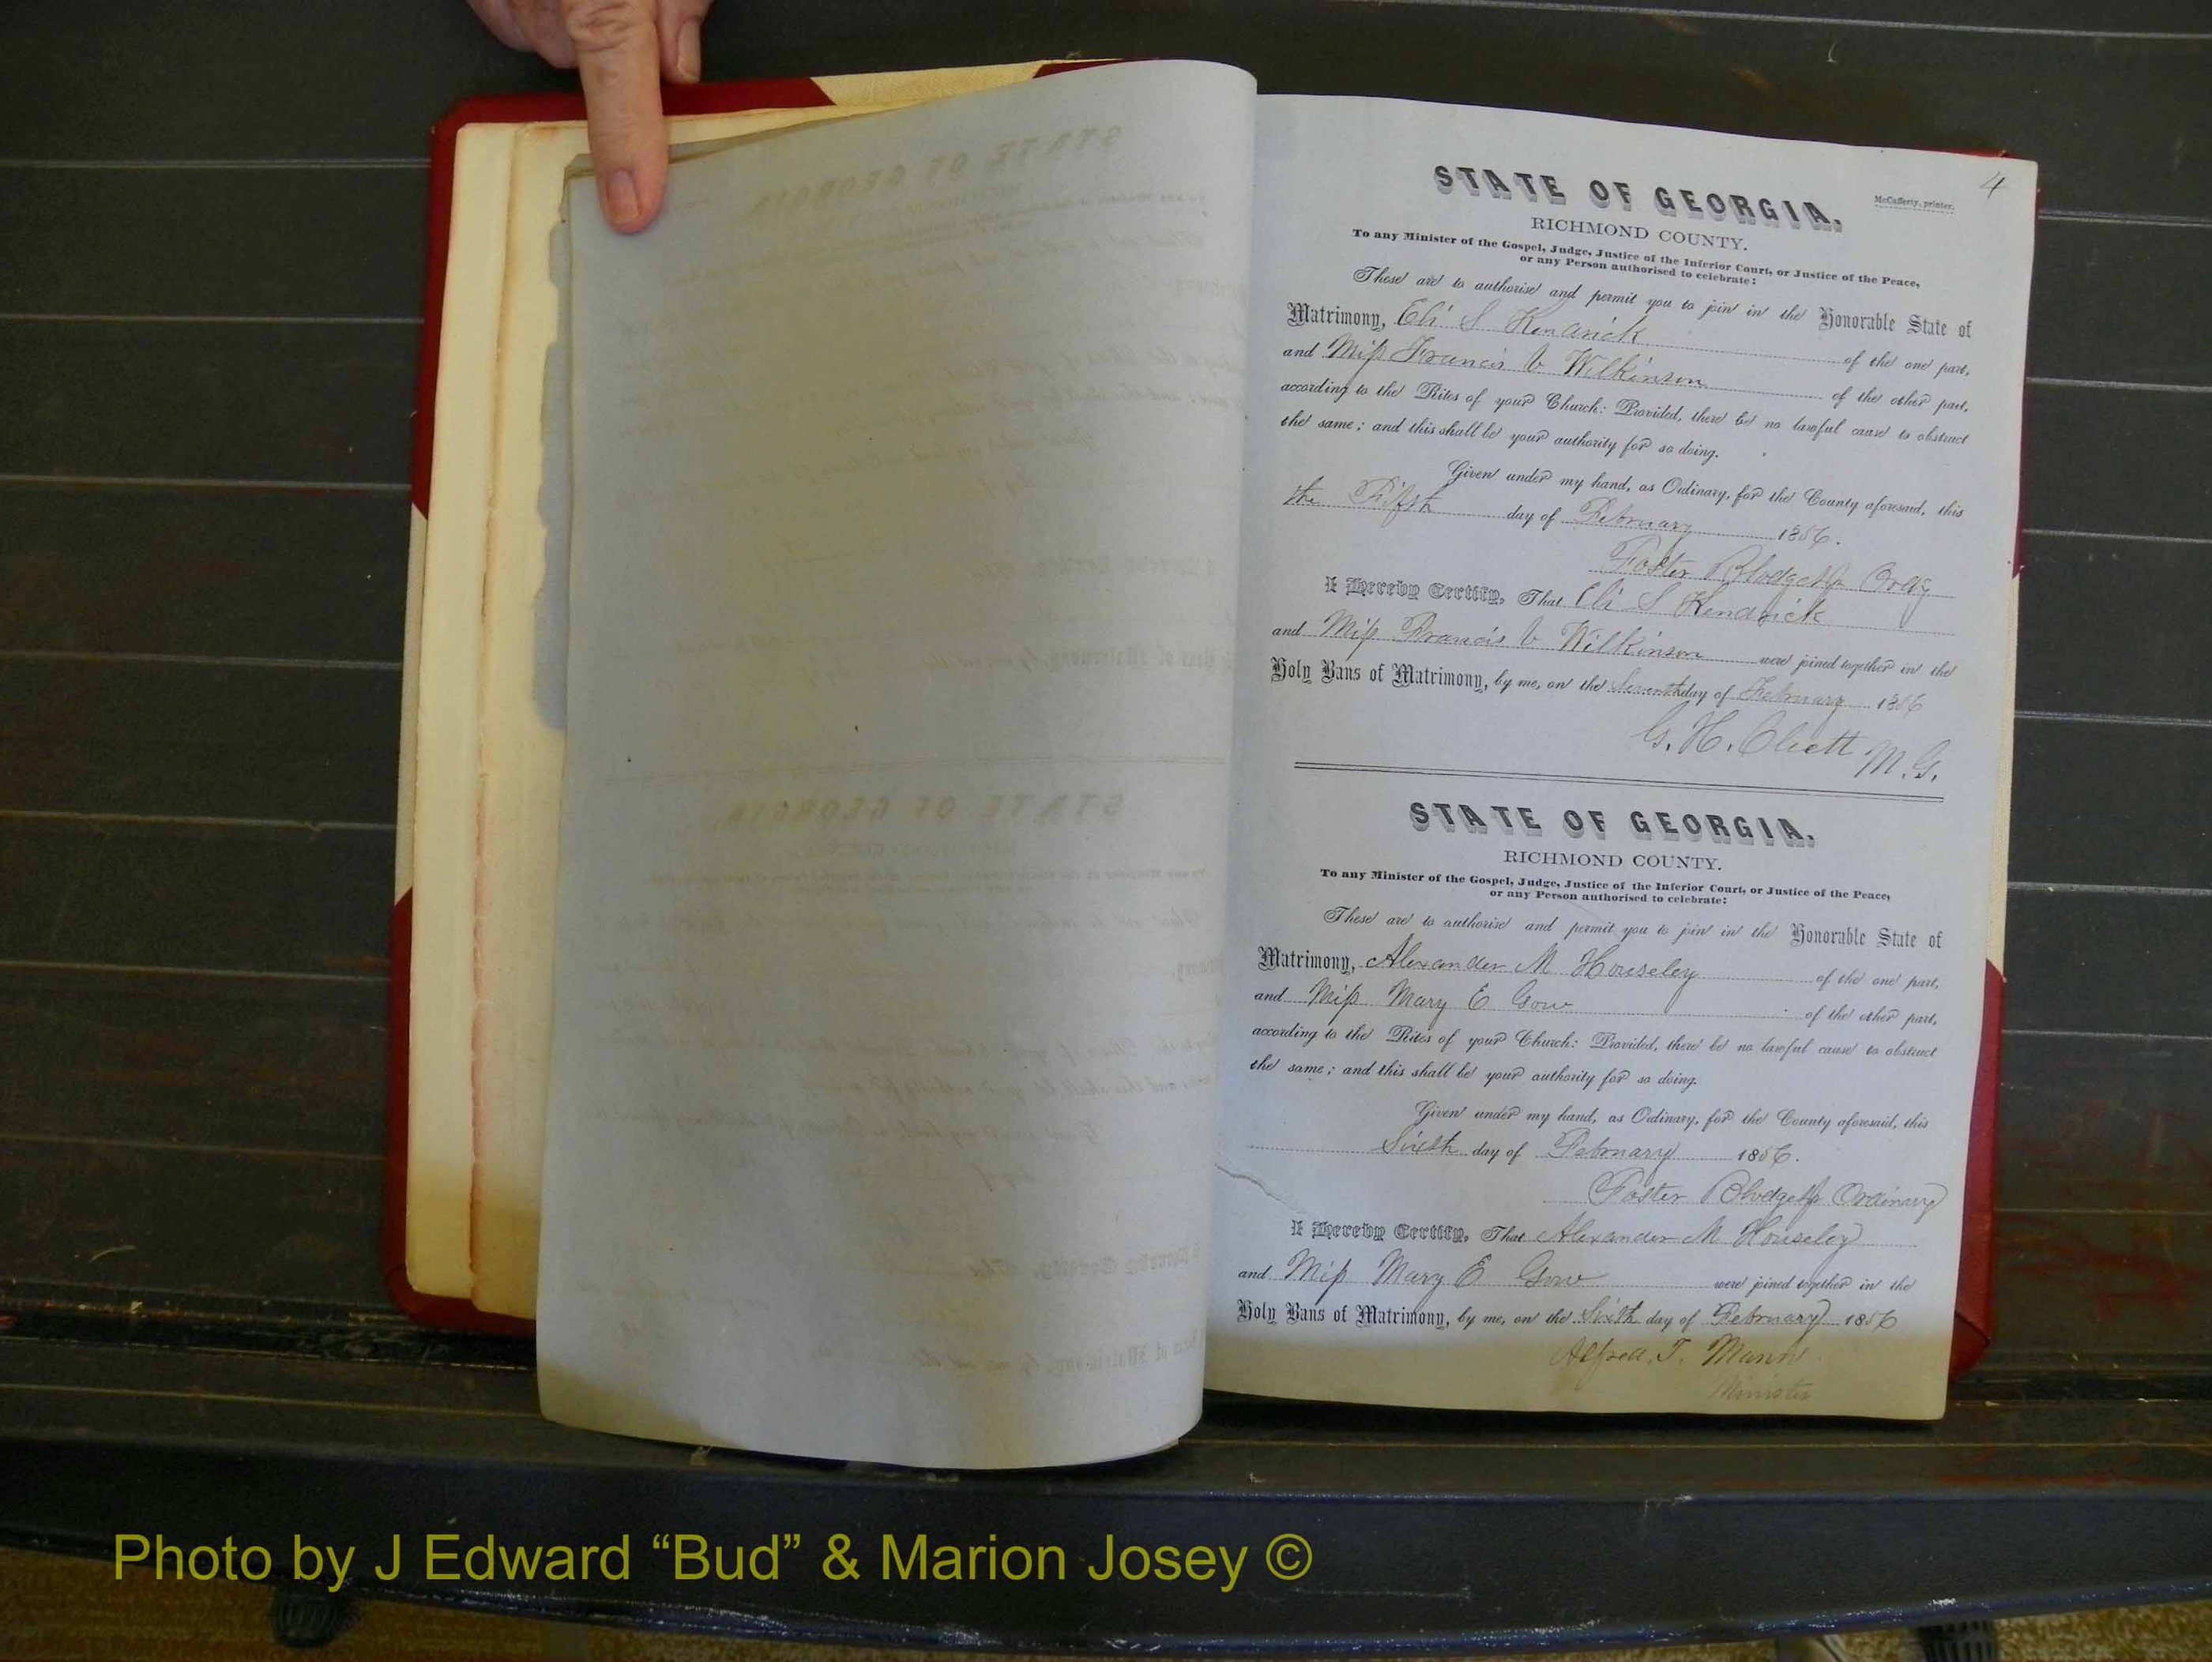 4
STATE OF GEORGIA,
McCafferty, printer.
RICHMOND COUNTY.
To any Minister of the Gospel, Judge, Justice of the Inferior Court, or Justice of the Peace,
or any Person authorised to celebrate:
These are to authorise and permit you to join in the Honorable State of
Matrimony, Eli S Kendrick of the one part,
and Miss Francis V Wilkinson of the other part,
according to the Rites of your Church: Provided, there be no lawful cause to obstruct
the same; and this shall be your authority for so doing.
Given under my hand, as Ordinary, for the County aforesaid, this
the Fifth day of February 1856.
Foster Blodget Jr Ordy
I Hereby Certify, That Eli S Kendrick
and Miss Francis V Wilkinson were joined together in the
Holy Bans of Matrimony, by me, on the Seventh day of February 1856
G. H. Cliett M.G.
STATE OF GEORGIA,
RICHMOND COUNTY.
To any Minister of the Gospel, Judge, Justice of the Inferior Court, or Justice of the Peace,
or any Person authorised to celebrate:
These are to authorise and permit you to join in the Honorable State of
Matrimony, Alexander M Houseley of the one part,
and Miss Mary E Gow of the other part,
according to the Rites of your Church: Provided, there be no lawful cause to obstruct
the same; and this shall be your authority for so doing.
Given under my hand, as Ordinary, for the County aforesaid, this
Sixth day of February 1856.
Foster Blodget Jr Ordinary
I Hereby Certify, That Alexander M Houseley
and Miss Mary E Gow were joined together in the
Holy Bans of Matrimony, by me, on the Sixth day of February 1856
Alfred T. Mann
Minister
Photo by J Edward “Bud” & Marion Josey ©